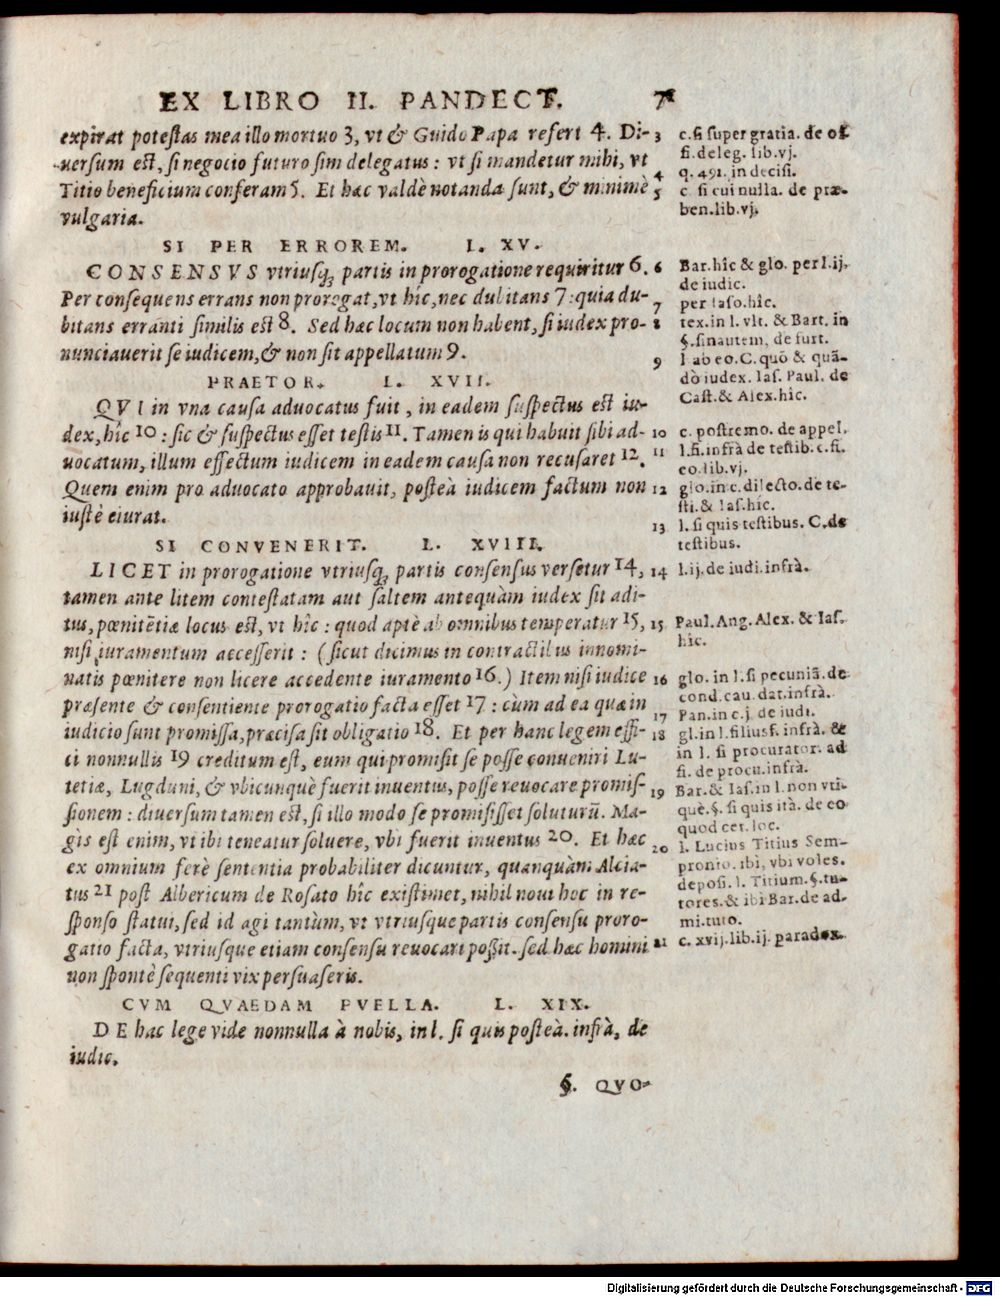 EX LIBRO II. PANDECT. 7
expirat potestas mea illo mortuo 3, vt & Guido Papa refert 4. Di-
uersum est, si negocio futuro sim delegatus : vt si mandetur mihi, vt
Titio beneficium conferam 5. Et hæc valdè notanda sunt, & minimè
vulgaria.
SI PER ERROREM. L. XV.
CONSENSVS vtriusq; partis in prorogatione requiritur 6.
Per consequens errans non prorogat, vt hîc, nec dubitans 7 : quia du-
bitans erranti similis est 8. Sed hæc locum non habent, si iudex pro-
nunciauerit se iudicem, & non sit appellatum 9.
PRAETOR. L. XVII.
QVI in vna causa aduocatus fuit, in eadem suspectus est iu-
dex, hîc 10 : sic & suspectus esset testis 11. Tamen is qui habuit sibi ad-
uocatum, illum effectum iudicem in eadem causa non recusaret 12.
Quem enim pro aduocato approbauit, posteà iudicem factum non
iustè eiurat.
SI CONVENERIT. L. XVIII.
LICET in prorogatione vtriusq; partis consensus versetur 14,
tamen ante litem contestatam aut saltem antequàm iudex sit adi-
tus, pœnitētiæ locus est, vt hîc : quod aptè ab omnibus temperatur 15,
nisi iuramentum accesserit : (sicut dicimus in contractibus innomi-
natis pœnitere non licere accedente iuramento 16.) Item nisi iudice
præsente & consentiente prorogatio facta esset 17 : cùm ad ea quæ in
iudicio sunt promissa, præcisa sit obligatio 18. Et per hanc legem effi-
ci nonnullis 19 creditum est, eum qui promisit se posse conueniri Lu-
tetiæ, Lugduni, & vbicunquè fuerit inuentus, posse reuocare promis-
sionem : diuersum tamen est, si illo modo se promisisset soluturū. Ma-
gis est enim, vt ibi teneatur soluere, vbi fuerit inuentus 20. Et hæc
ex omnium ferè sententia probabiliter dicuntur, quanquàm Alcia-
tus 21 post Albericum de Rosato hîc existimet, nihil noui hoc in re-
sponso statui, sed id agi tantùm, vt vtriusque partis consensu proro-
gatio facta, vtriusque etiam consensu reuocari possit. sed hæc homini
non spontè sequenti vix persuaseris.
CVM QVAEDAM PVELLA. L. XIX.
DE hac lege vide nonnulla à nobis, in l. si quis posteà. infrà, de
iudic.
§. QVO-
3 c. si super gratia. de of
fi. deleg. lib. vj.
4 q. 491. in decisi.
5 c. si cui nulla. de præ-
ben. lib. vj.
6 Bar. hîc & glo. per l. ij.
de iudic.
7 per Iaso. hîc.
8 tex. in l. vlt. & Bart. in
§. sin autem, de furt.
9 l. ab eo. C. quō & quā-
dò iudex. Ias. Paul. de
Cast. & Alex. hîc.
10 c. postremo. de appel.
11 l. fi. infrà de testib. c. fi.
eo. lib. vj.
12 glo. in c. dilecto. de te-
sti. & Ias. hîc.
13 l. si quis testibus. C. de
testibus.
14 l. ij. de iudi. infrà.
15 Paul. Ang. Alex. & Ias.
hîc.
16 glo. in l. si pecuniā. de
cond. cau. dat. infrà.
17 Pan. in c. j. de iudi.
18 gl. in l. filiusf. infrà. &
in l. si procurator. ad
fi. de procu. infrà.
19 Bar. & Ias. in l. non vti-
què. §. si quis ità. de eo
quod cer. loc.
20 l. Lucius Titius Sem-
pronio. ibi, vbi voles.
deposi. l. Titium. §. tu-
tores. & ibi Bar. de ad.
mi. tuto.
21 c. xvij. lib. ij. paradox.
Digitalisierung gefördert durch die Deutsche Forschungsgemeinschaft - DFG